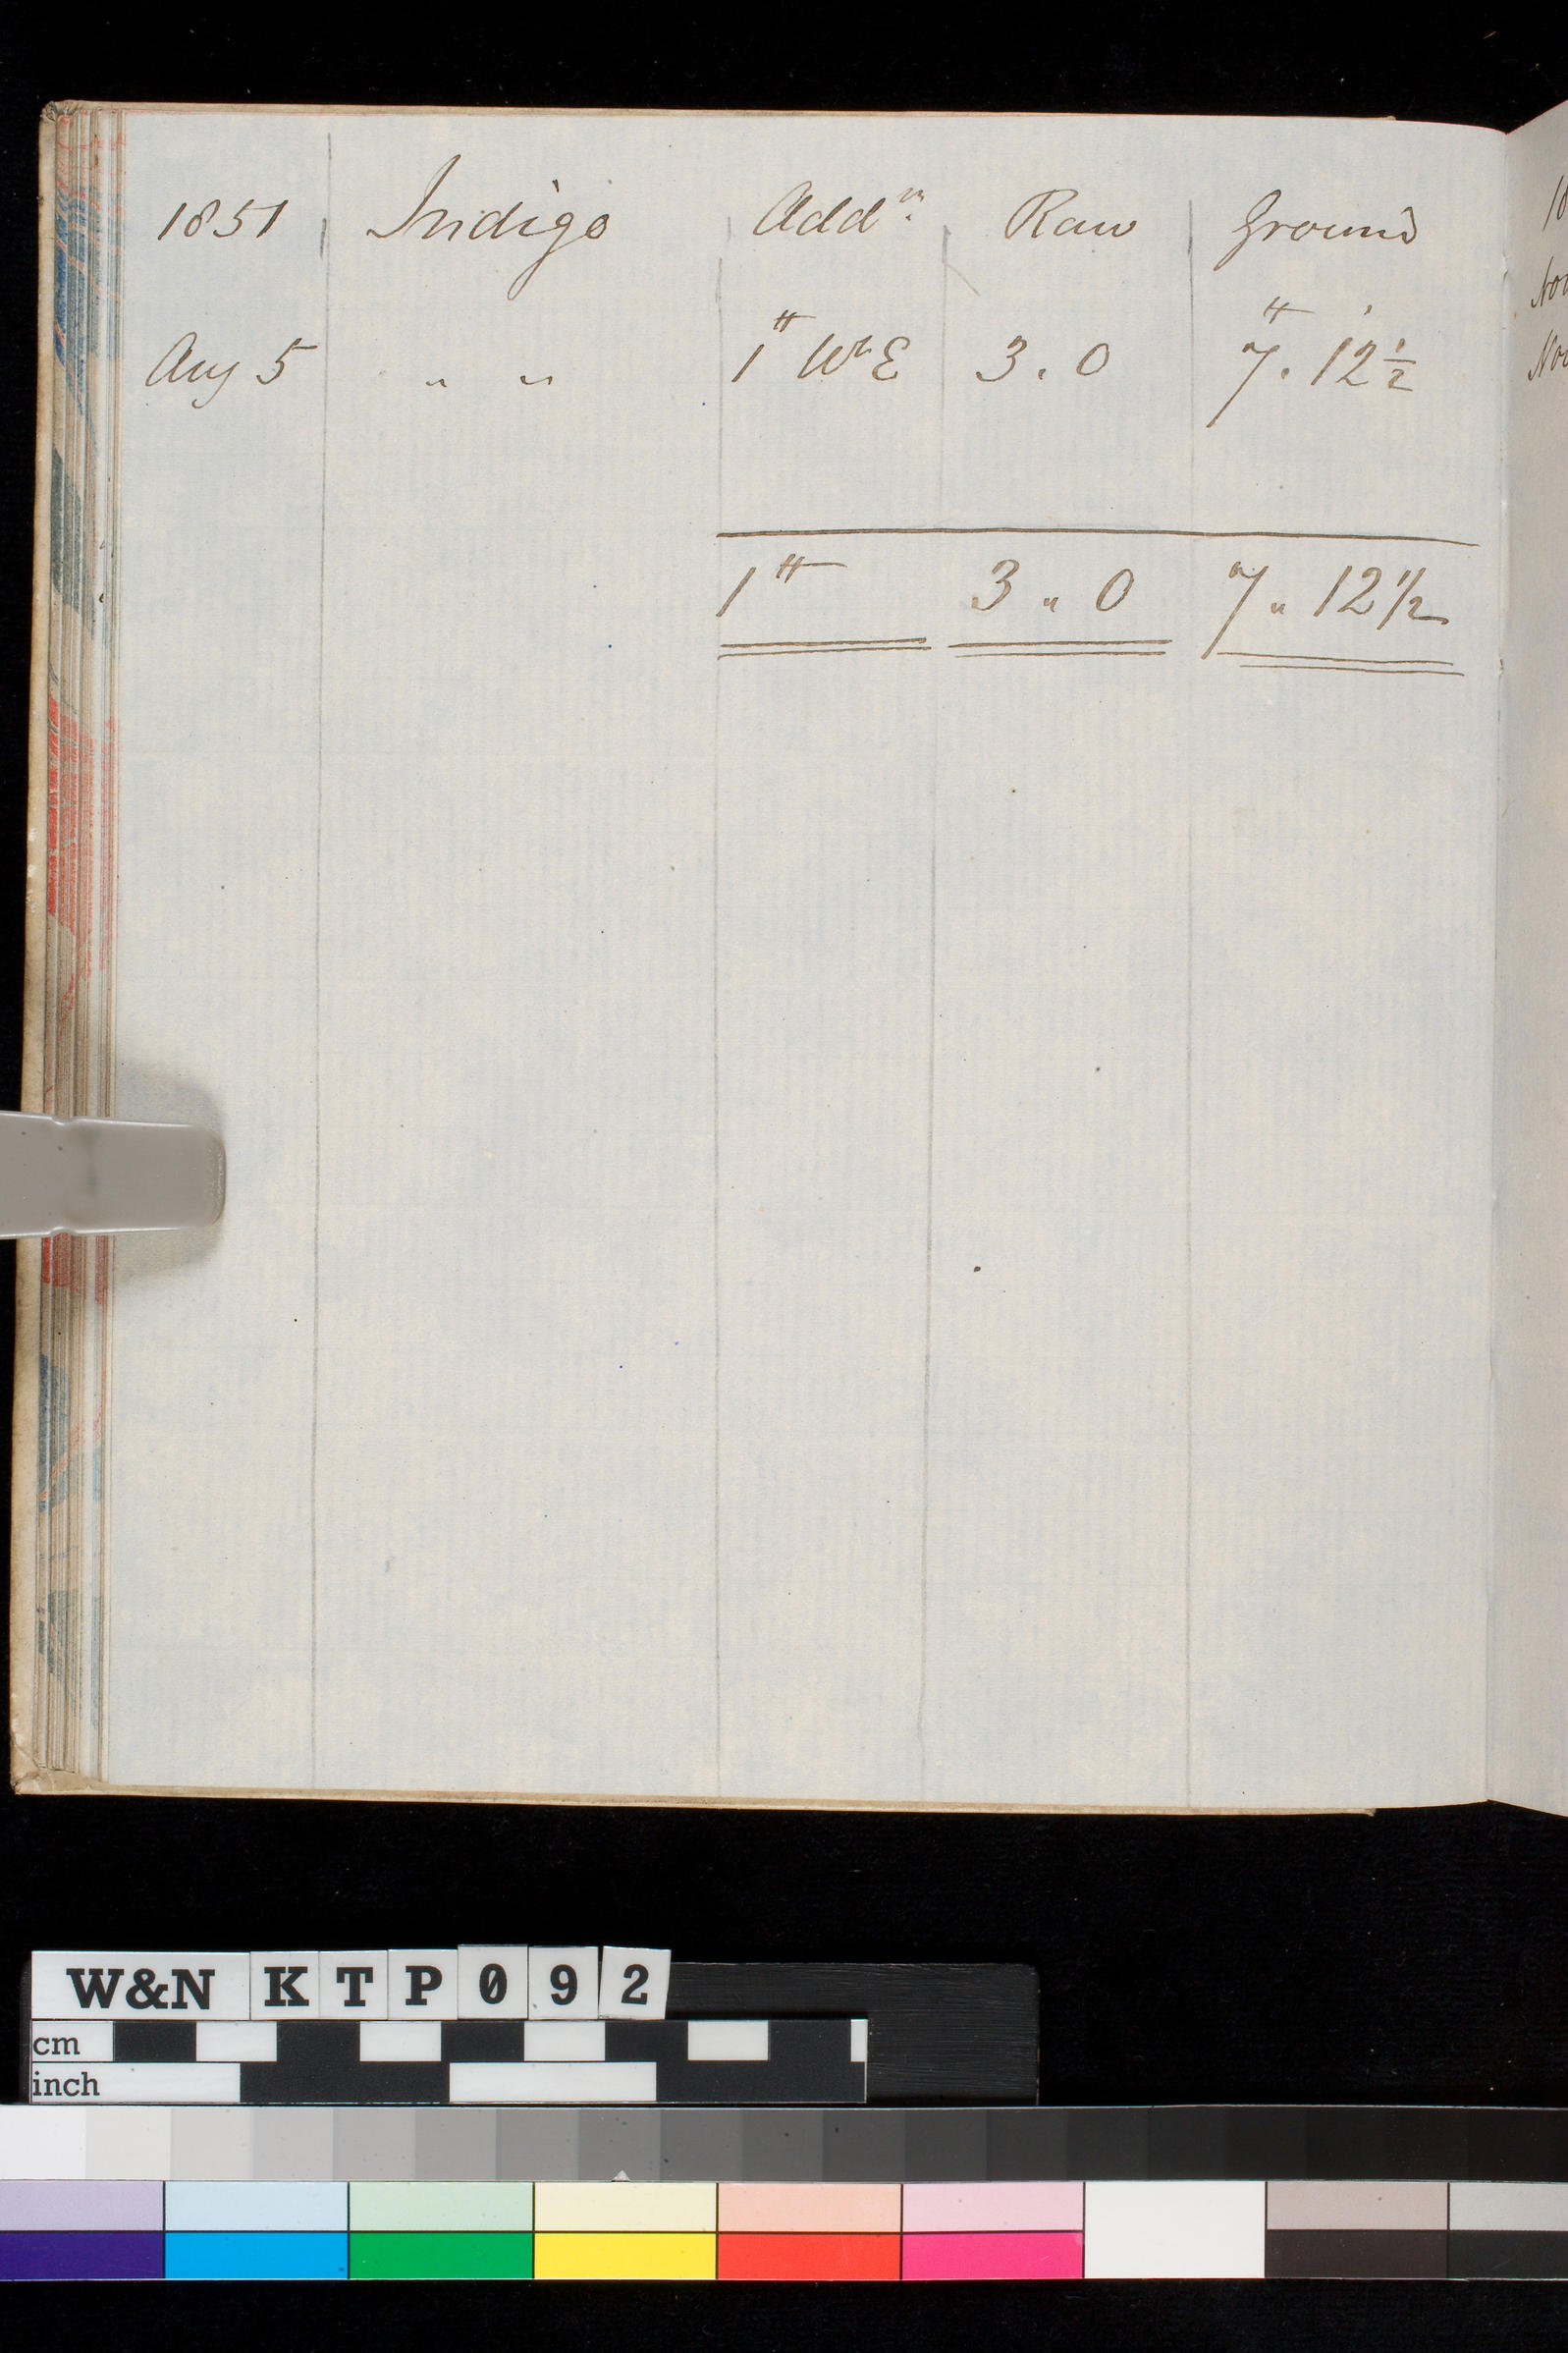 1851 Indigo Addn. Raw Ground
Aug 5 " " 1 ℔ Wt E 3.0 7 ℔. 12 1/2
1 ℔ 3 " 0 7 " 12 1/2
18
Nov
Nov
W&N KTP092
cm
inch